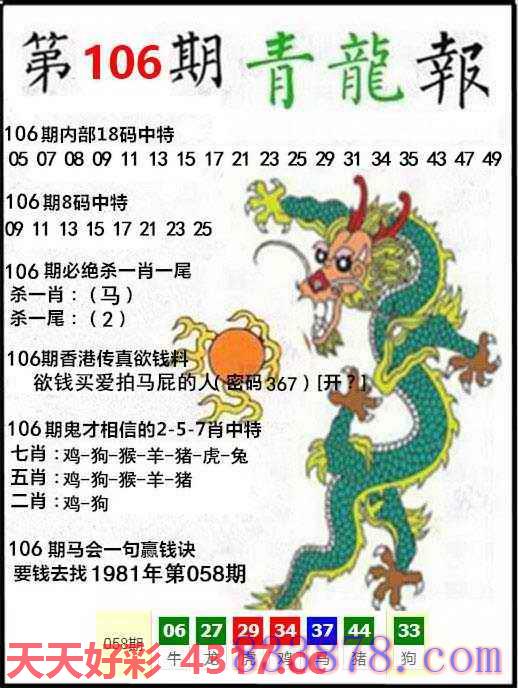 第106期青龍報
106期内部18码中特
05 07 08 09 11 13 15 17 21 23 25 29 31 34 35 43 47 49
106期8码中特
09 11 13 15 17 21 23 25
106期必绝杀一肖一尾
杀一肖：（马）
杀一尾：（2）
106期香港传真欲钱料
欲钱买爱拍马屁的人（密码367）[开？]
106期鬼才相信的2-5-7肖中特
七肖：鸡-狗-猴-羊-猪-虎-兔
五肖：鸡-狗-猴-羊-猪
二肖：鸡-狗
106期马会一句赢钱诀
要钱去找1981年第058期
058期 06 27 29 34 37 44 33
牛 龙 虎 鸡 马 猪 狗
天天好彩 4317.cc
838878.com